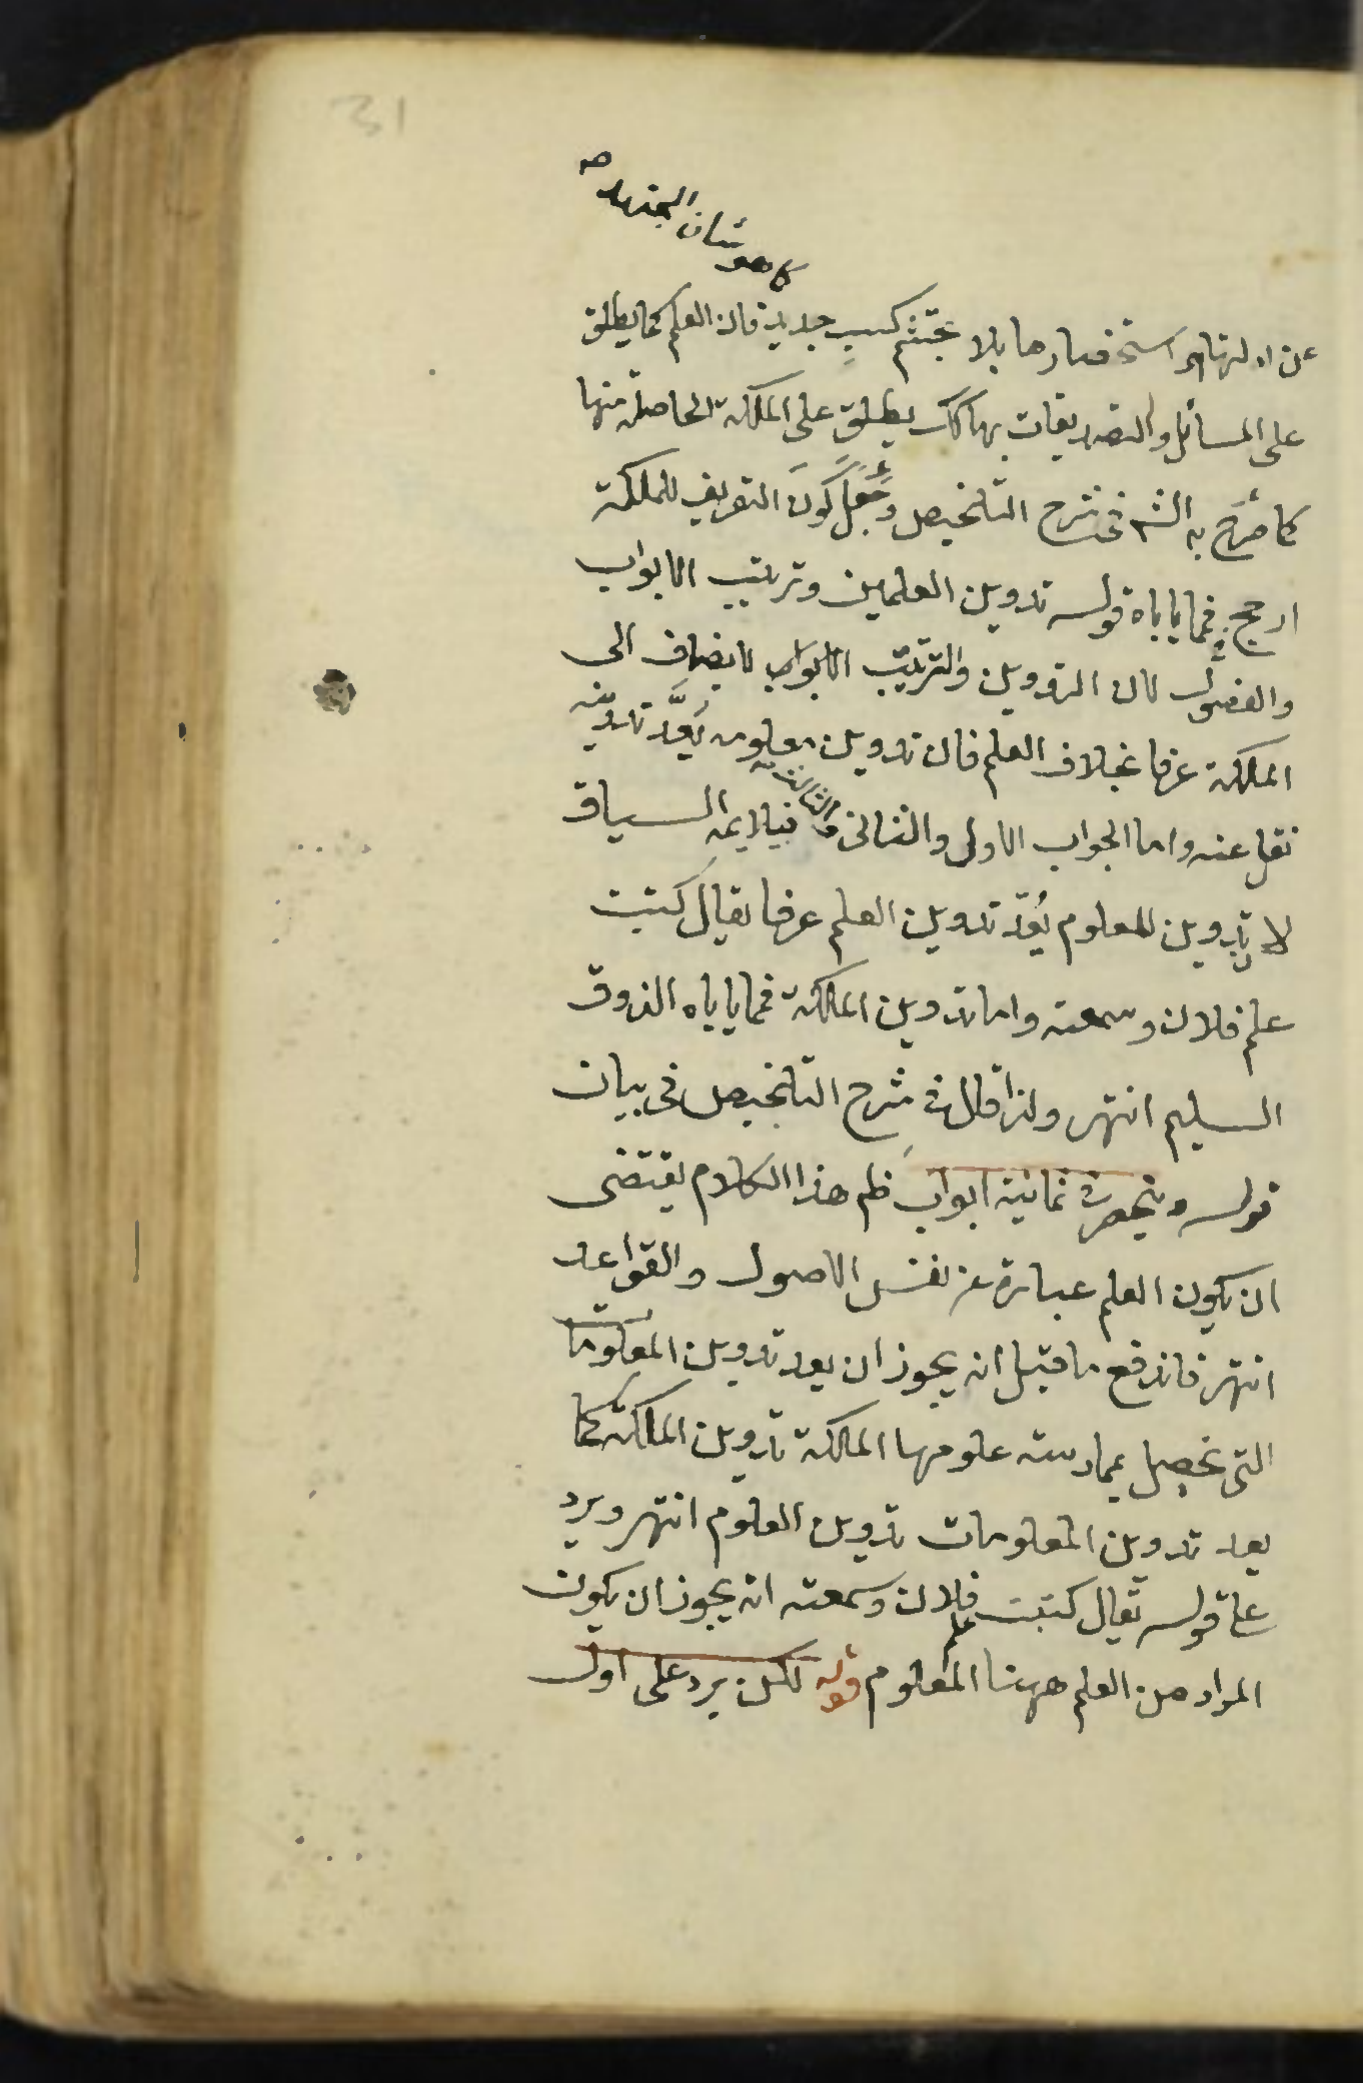 31
كما هو شان المجتهد صح
عن ادلتها و استحضارها بلا تجشّم كسبٍ جديد فان العلم كما يطلق
على المسائل والتصديقات بها كك يطلق على الملكة الحاصلة منها
كما صرّح به الش فى شرح التلخيص وجَعْلُ كَونَ التعريف للملكة
ارجح فمما ياباه قوله تدوين العلمين وترتيب الابواب
والفصول لان التدوين والترتيب الابواب لا يضاف الى
الملكة عرفا بخلاف العلم فان تدوين معلومه يُعدَّ تدوينه
نقل عنه واما الجواب الاول والثانى والثالث فيلايمه السياق
لا تدوين للمعلوم يُعدّ تدوين العلم عرفا يقال كتبت
علم فلان وسمعته واما تدوين الملكة فمما ياباه الذوق
السليم انتهى ولذا قال فى شرح التلخيص فى بيان
قوله وينحصر فى ثمانية ابواب ظم هذا الكلام يقتضى
ان يكون العلم عبارة عن نفس الاصول والقواعد
انتهى فاندفع ما قيل انه يجوز ان يعد تدوين المعلومات
التى تحصل بممارسة علومها الملكة تدوين الملكة كما
يعد تدوين المعلومات تدوين العلوم انتهى ويرد
على قوله يقال كتبت علم فلان وسمعته انه يجوز ان يكون
المراد من العلم ههنا المعلوم قوله لكن يرد على اول